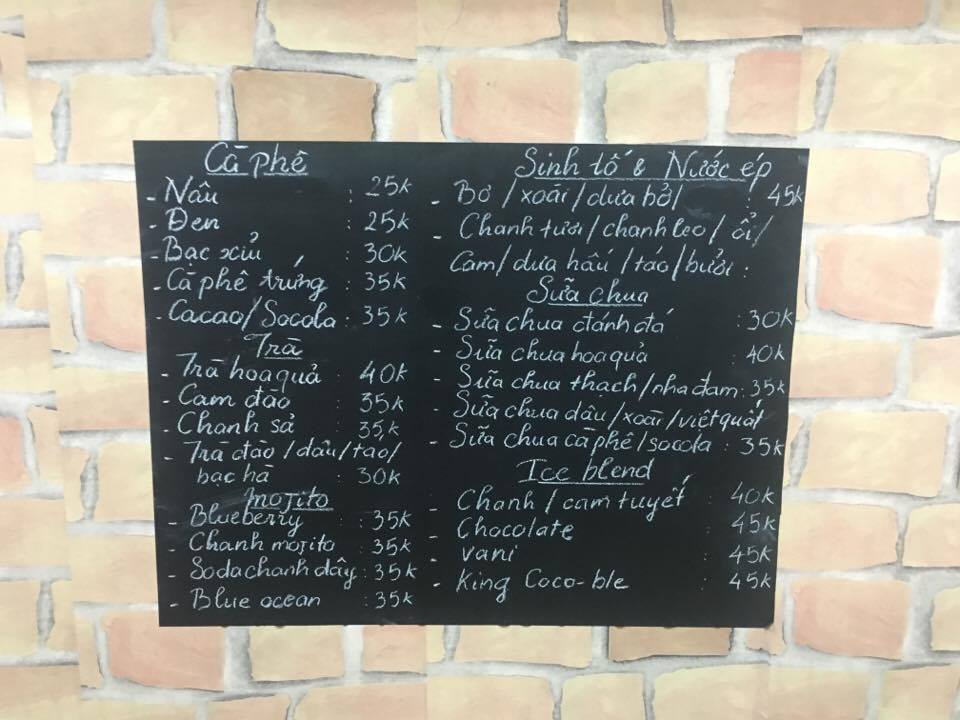 Cà phê
- Nâu : 25k
- Đen : 25k
- Bạc xỉu : 30k
- Cà phê trứng : 35k
- Cacao/Socola : 35k
Trà
- Trà hoa quả : 40k
- Cam đào : 35k
- Chanh sả : 35k
- Trà đào/dâu/táo/
bạc hà : 30k
mojito
- Blueberry : 35k
- Chanh mojito : 35k
- Soda chanh dây : 35k
- Blue ocean : 35k
Sinh tố & Nước ép
- Bơ/xoài/dưa bở/ : 45k
- Chanh tươi/chanh leo/ổi/
Cam/dưa hấu/táo/bưởi :
Sữa chua
- Sữa chua đánh đá : 30k
- Sữa chua hoa quả 40k
- Sữa chua thạch/nha đam : 35k
- Sữa chua dâu/xoài/việt quất
- Sữa chua cà phê/socola : 35k
Ice blend
- Chanh/cam tuyết : 40k
- Chocolate : 45k
- vani : 45k
- King Coco-ble : 45k